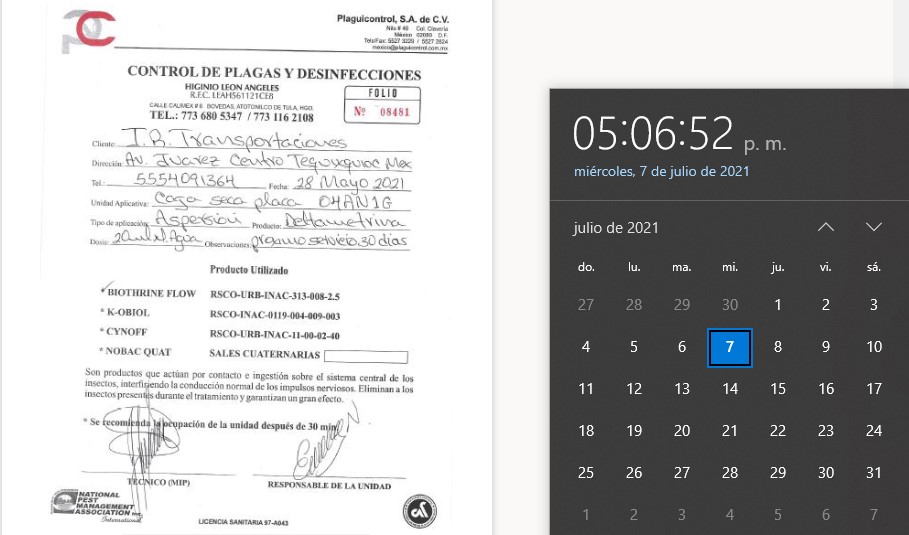 Plaguicontrol, S.A. de C.V.
Nilo # 48 Col. Clavería
México 02080 D.F.
Tels/Fax: 5527 3229 / 5527 2824
mexico@plaguicontrol.com.mx
CONTROL DE PLAGAS Y DESINFECCIONES
HIGINIO LEON ANGELES
R.F.C. LEAH561121CE8
CALLE CALIMEX # 6 BOVEDAS, ATOTONILCO DE TULA, HGO.
TEL.: 773 680 5347 / 773 116 2108
FOLIO
Nº 08481
Cliente: I.R. Transportaciones
Dirección: Av. Juarez Centro Tequixquiac Mex
Tel.: 5554091364 Fecha: 28 Mayo 2021
Unidad Aplicativa: Caja seca placa 04AN1G
Tipo de aplicación: Aspersion Producto: Deltametrina
Dosis: 20ml Agua Observaciones: servicio 30 dias
Producto Utilizado
* BIOTHRINE FLOW RSCO-URB-INAC-313-008-2.5
* K-OBIOL RSCO-INAC-0119-004-009-003
* CYNOFF RSCO-URB-INAC-11-00-02-40
* NOBAC QUAT SALES CUATERNARIAS
Son productos que actúan por contacto e ingestión sobre el sistema central de los
insectos, interfiriendo la conducción normal de los impulsos nerviosos. Eliminan a los
insectos presentes durante el tratamiento y garantizan un gran efecto.
* Se recomienda la ocupación de la unidad después de 30 min.
TÉCNICO (MIP)
RESPONSABLE DE LA UNIDAD
NATIONAL
PEST
MANAGEMENT
ASSOCIATION INC.
International
LICENCIA SANITARIA 97-A043
05:06:52 p. m.
miércoles, 7 de julio de 2021
julio de 2021
do. lu. ma. mi. ju. vi. sá.
27 28 29 30 1 2 3
4 5 6 7 8 9 10
11 12 13 14 15 16 17
18 19 20 21 22 23 24
25 26 27 28 29 30 31
1 2 3 4 5 6 7